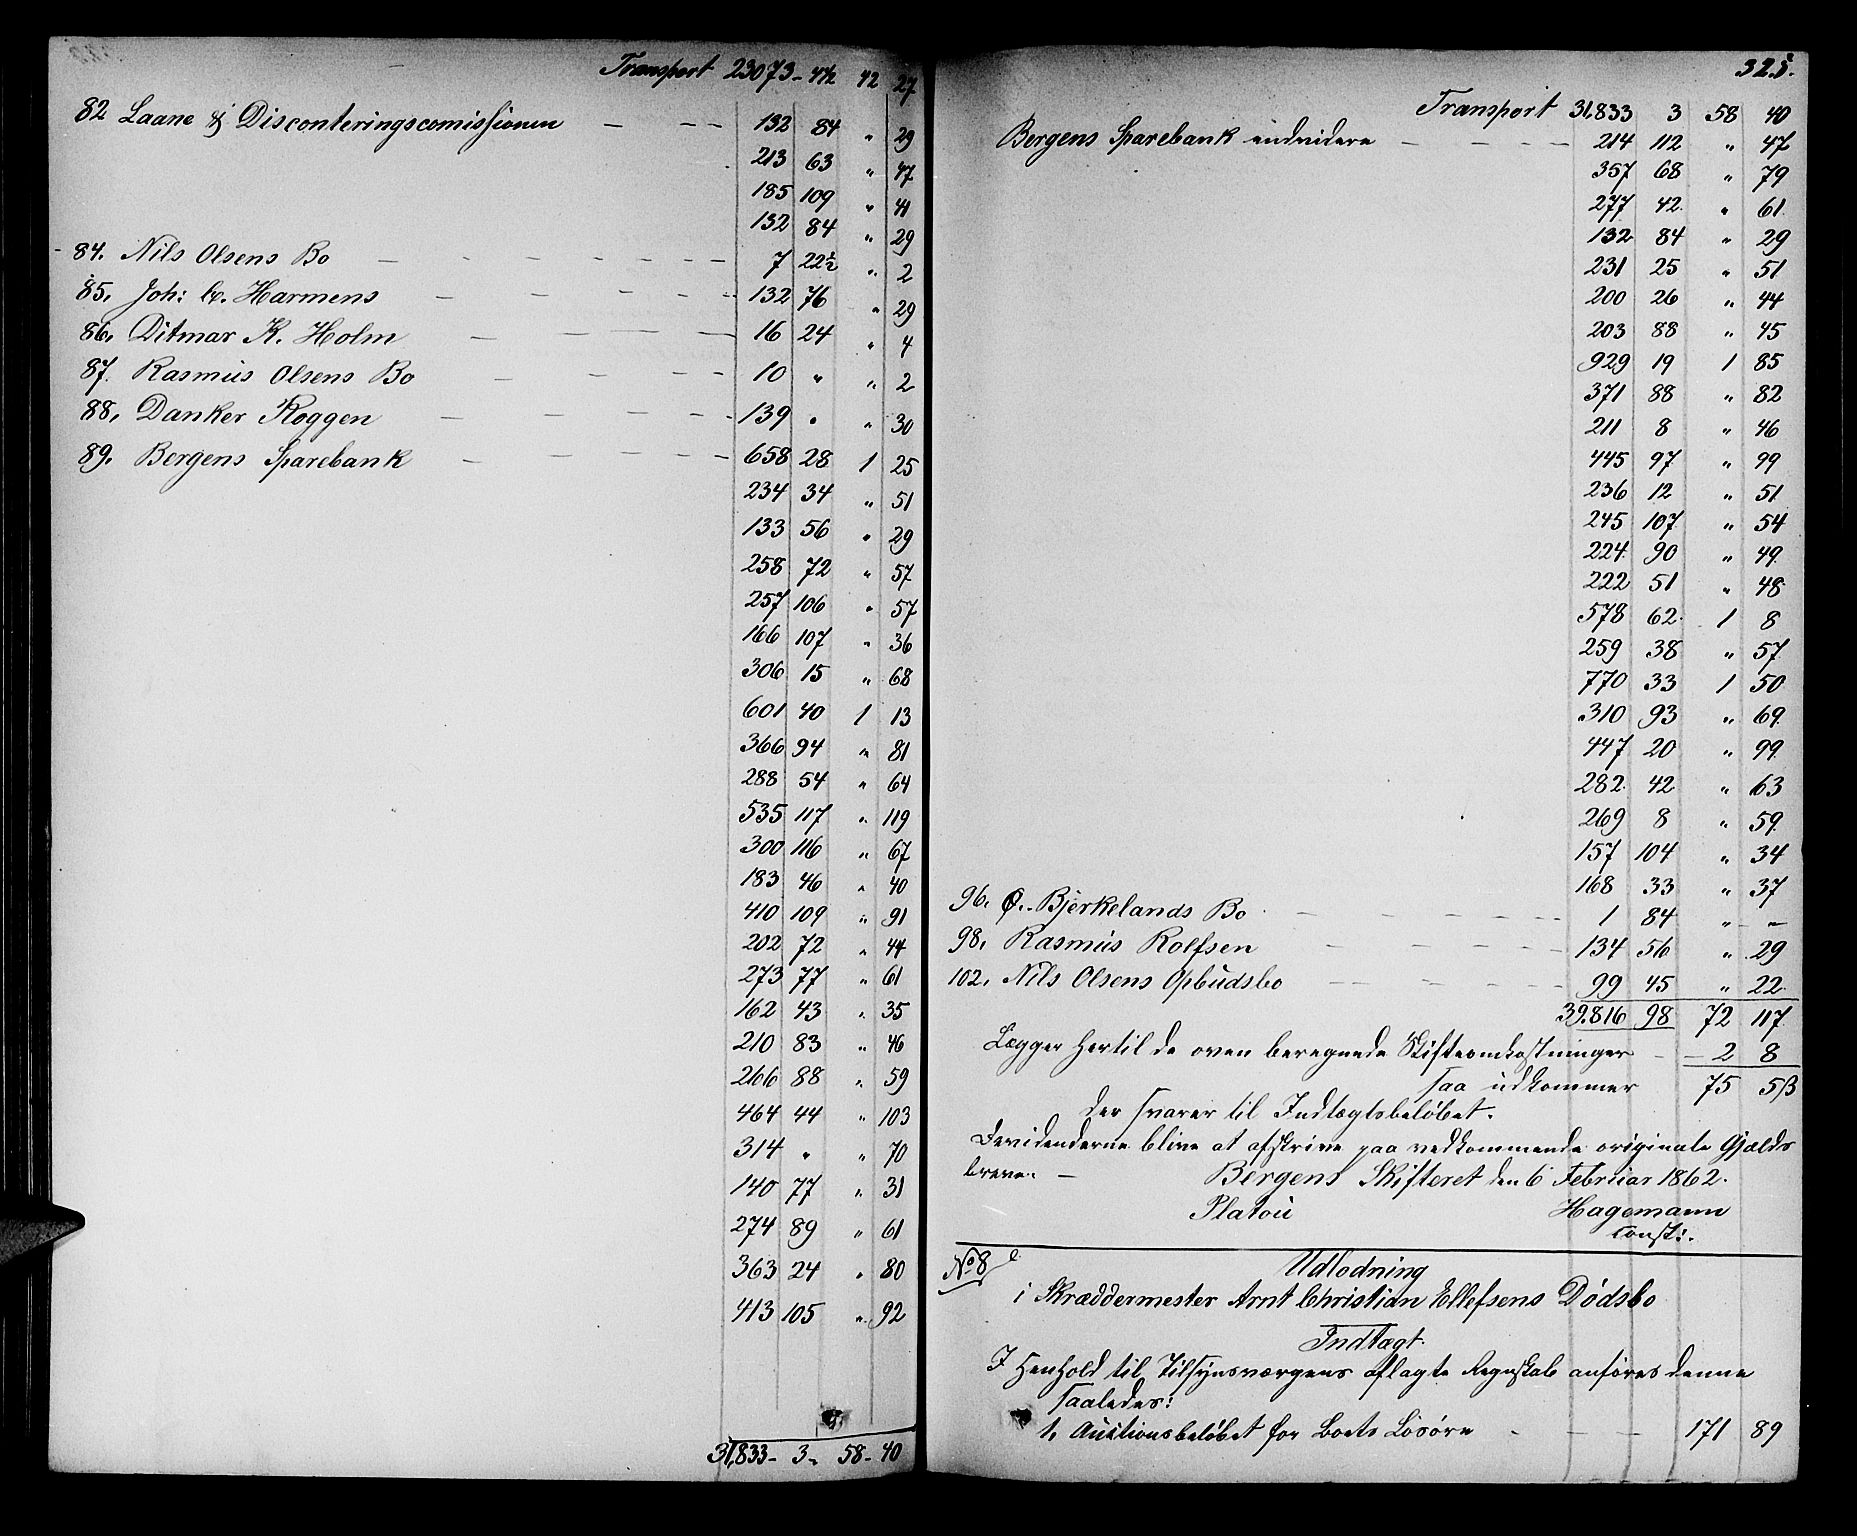 Transport 23073 - 4½ 42 27
82 Laane & Disconteringscomissionen — — — 132 84 " 29
213 63 " 47
185 109 " 41
132 84 " 29
84. Nils Olsens Bo — — — 7 22½ " 2
85. Joh: C. Harmens — — — 132 76 " 29
86. Ditmar K. Holm — — — 16 24 " 4
87. Rasmus Olsens Bo — — — 10 " " 2
88. Danker Roggen — — — 139 " " 30
89. Bergens Sparebank — — — 658 28 1 25
234 34 " 51
133 56 " 29
258 72 " 57
257 106 " 57
166 107 " 36
306 15 " 68
601 40 1 13
366 94 " 81
288 54 " 64
535 117 " 119
300 116 " 67
183 46 " 40
410 109 " 91
202 72 " 44
273 77 " 61
162 43 " 35
210 83 " 46
266 88 " 59
464 44 " 103
314 " " 70
140 77 " 31
274 89 " 61
363 24 " 80
413 105 " 92
31,833 - 3 - 58 - 40
325.
Transport 31,833 3 58 40
Bergens Sparebank endvidere — — — 214 112 " 47
357 68 " 79
277 42 " 61
132 84 " 29
231 25 " 51
200 26 " 44
203 88 " 45
929 19 1 85
371 88 " 82
211 8 " 46
445 97 " 99
236 12 " 51
245 107 " 54
224 90 " 49
222 51 " 48
578 62 1 8
259 38 " 57
770 33 1 50
310 93 " 69
447 20 " 99
282 42 " 63
269 8 " 59
157 104 " 34
168 33 " 37
96. Ø. Bjerkelands Bo — — — 1 84 " —
98. Rasmus Rolfsen — — — 134 56 " 29
102. Nils Olsens Opbudsbo — — — 99 45 " 22
39.816 98 72 117
Lægger hertil de oven beregnede Skifteomkostninger — 2 8
saa udkommer 75 5 β
der svarer til Indtægtsbeløbet.
Devidenderne blive at afskrive paa vedkommende originale Gjælds
breve. —
Bergens Skifteret den 6 Februar 1862.
Platou Hagemann
const:.
No 8
Udlodning
i Skræddermester Arnt Christian Ellefsens Dødsbo
Indtægt.
I Henhold til Tilsynsværgens aflagte Regnskab anføres denne
saaledes:
1. Auctionsbeløbet for Boets Løsøre — — — 171 89